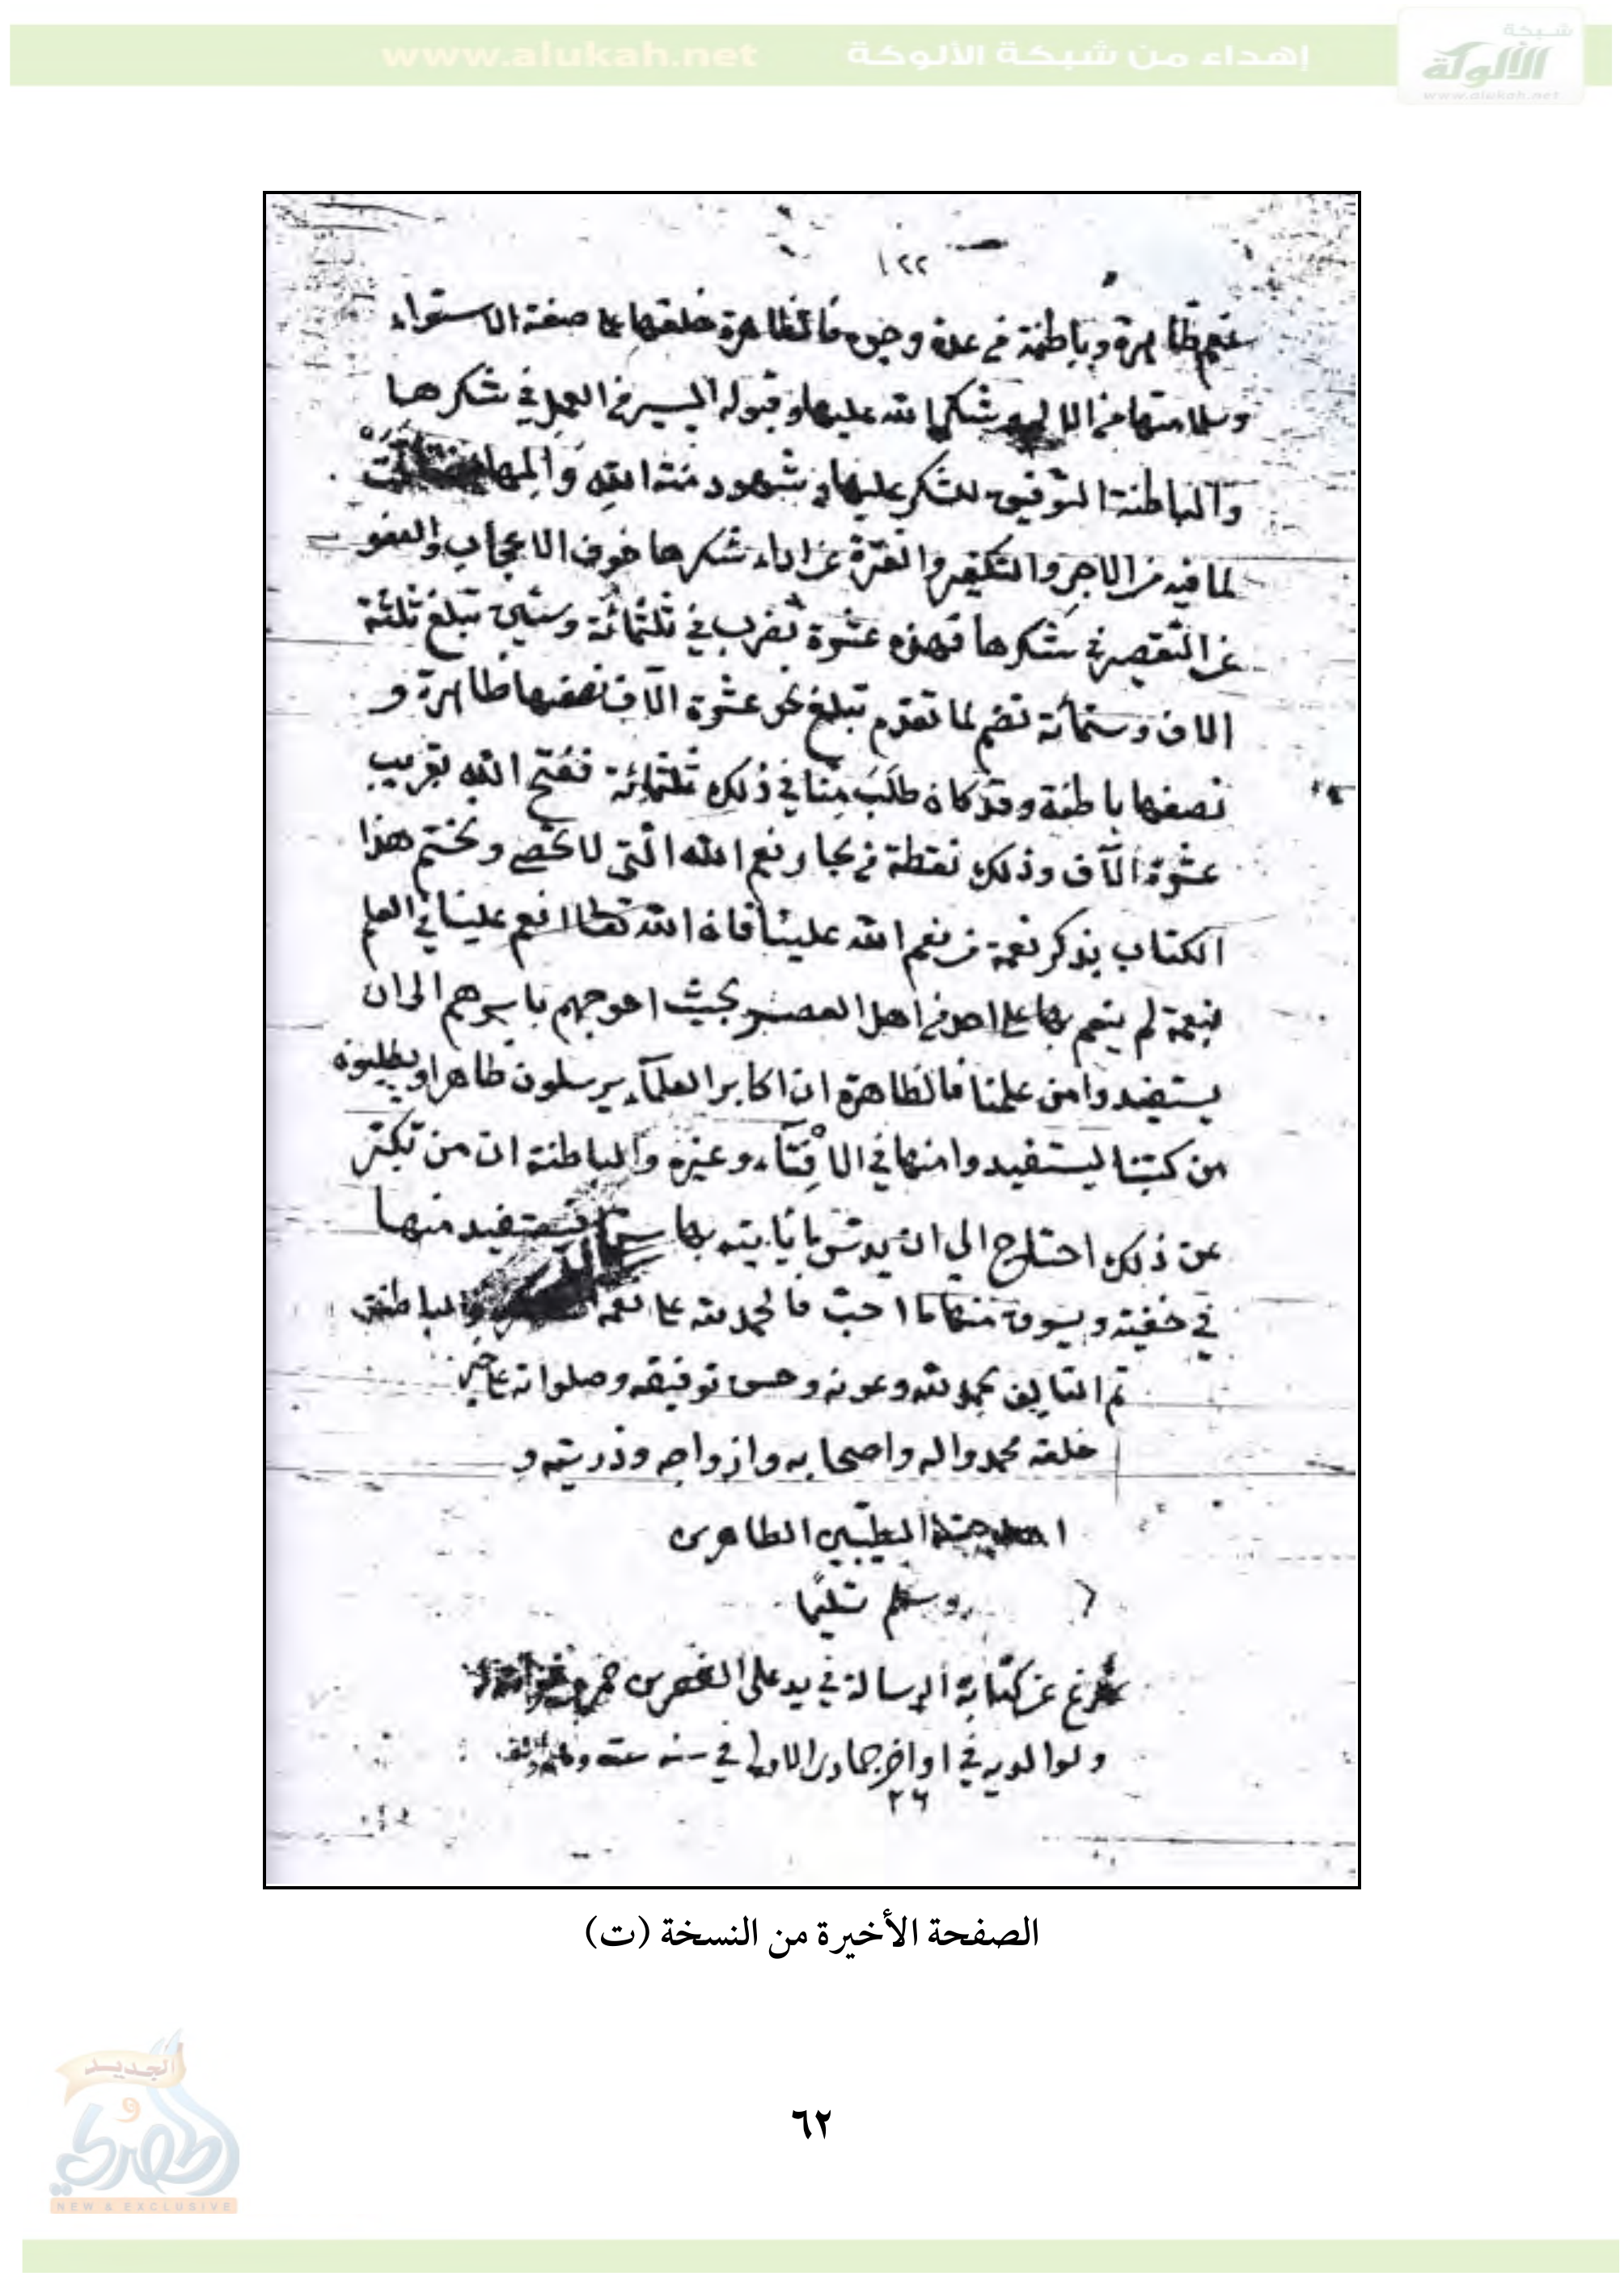 شبكة
الألوكة
www.alukah.net
إهداء من شبكة الألوكة
www.alukah.net
١٢٢
نعم ظاهرة وباطنة في عدة وجوه فالظاهرة خلقها على صفة الاستواء
وسلامتها من شكر الله عليها وقبوله اليسير من العمل في شكرها
والباطنة التوفيق للشكر عليها في شهود منة الله والهامه
لما فيه من الاجر والتكفير والفترة عن اداء شكرها خوف الاعجاب والعفو
عن التقصير في شكرها فهذه عشرة تضرب في ثلثمائة وستين تبلغ ثلثة
الاف وستمائة تضم لما تقدم تبلغ نحو عشرة الآف نصفها ظاهرة و
نصفها باطنة وقد كان طلب منا في ذلك ثلثمائة ففتح الله بقريب
عشرة الآف وذلك نقطة من بحار نعم الله التي لا تحصى ونختم هذا
الكتاب بذكر نعمة من نعم الله علينا فان الله تعالى انعم علينا في العلم
نعمة لم ينعم بها على احد من اهل العصر بحيث احوجهم باسرهم الى ان
يستفيدوا من علمنا فالظاهرة ان اكابر العلمآء يرسلون ظاهرا ويطلبون
من كتبنا ليستفيدوا منها في الافتآء وغيره والباطنة ان من تكبر
عن ذلك احتاج الى ان يدس من ياتيه بها سرا يستفيد منها
في خفية ويسرق منها ما احب فالحمد لله على نعمه والباطنة
تم التاليف بحمد لله وعونه وحسن توفيقه وصلواته على خير
خلقه محمد واله واصحابه وازواجه وذريته و
الطيبين الطاهرين
وسلم تسليما
فرغ عن كتابة الرسالة في يد
ولوالديه في اواخر جمادى الاولى في سنه ستة
٢٦
الصفحة الأخيرة من النسخة (ت)
الجديد
و
الحصري
NEW & EXCLUSIVE
٦٢